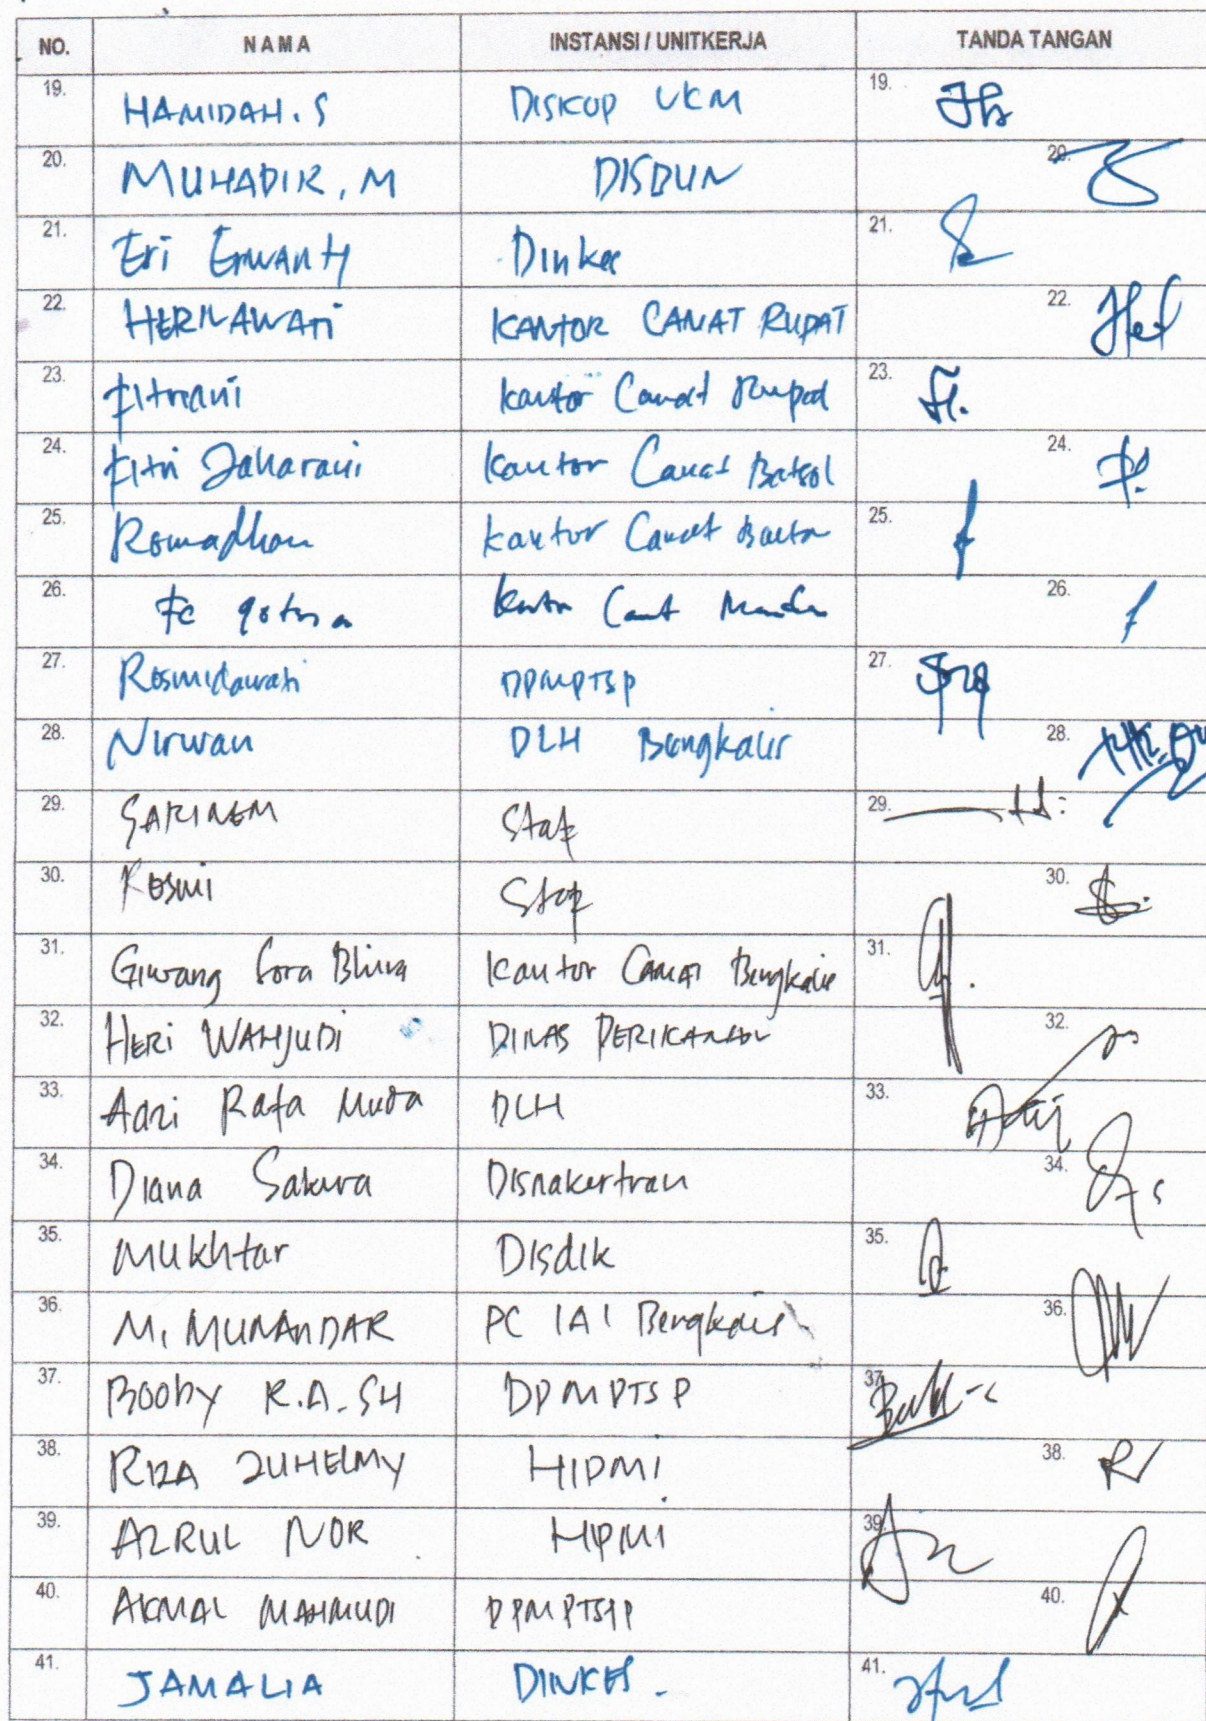 NO. NAMA INSTANSI / UNITKERJA TANDA TANGAN
19. HAMIDAH. S DISKOP UKM 19.
20. MUHADIR, M DISBUN 20.
21. Eri Erwanty Dinkes 21.
22. HERNAWATi KANTOR CAMAT RUPAT 22.
23. Fitriani Kantor Camat Rupat 23.
24. Fitri Zaharani Kantor Camat Batsol 24.
25. Romadhan Kantor Camat 25.
26. 26.
27. Rosmidawati DPMPTSP 27.
28. Nirwan DLH Bengkalis 28.
29. SARINEM Staf 29.
30. Rosmi Staf 30.
31. Giwang Kantor CAMAT Bengkalis 31.
32. HERi WAHJUDI DINAS PERIKANAN 32.
33. Adzi Rafa Muda DLH 33.
34. Diana Sakura Disnakertran 34.
35. Mukhtar Disdik 35.
36. M. MUNANDAR PC IAI Bengkalis 36.
37. BOObY R.A. SH DPMPTSP 37.
38. RIZA ZUHELMY HIPMI 38.
39. AZRUL NOR HIPMI 39.
40. AKMAL MAHMUDI DPMPTSP 40.
41. JAMALIA DINKES. 41.